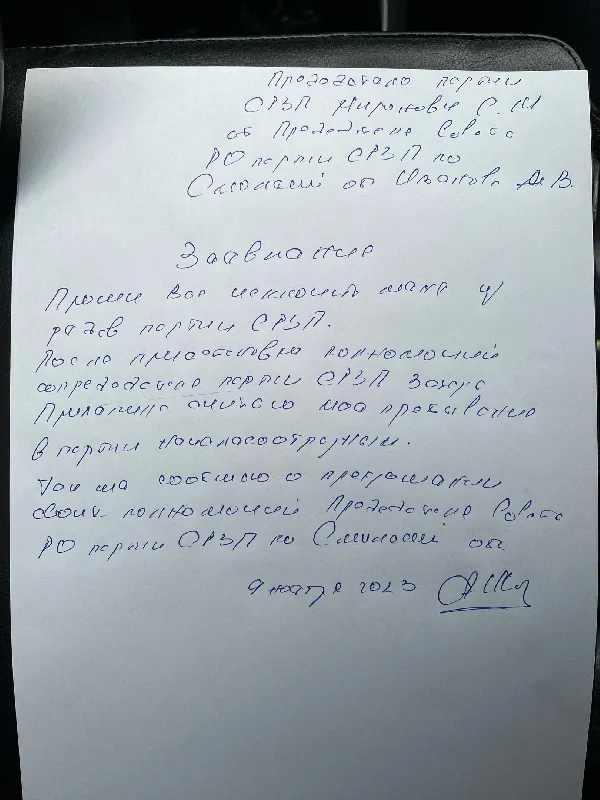 Председателю партии
СРЗП Миронову С.М
от Председателя Совета
РО партии СРЗП по
Смоленской от Иванова Д.В.
Заявление
Прошу Вас исключить меня из
рядов партии СРЗП.
После приостановки полномочий
сопредседателя партии СРЗП Захара
Прилепина считаю мое пребывание
в партии нецелесообразным.
Так же сообщаю о прекращении
своих полномочий Председателя Совета
РО партии СРЗП по Смоленской от
9 ноября 2023